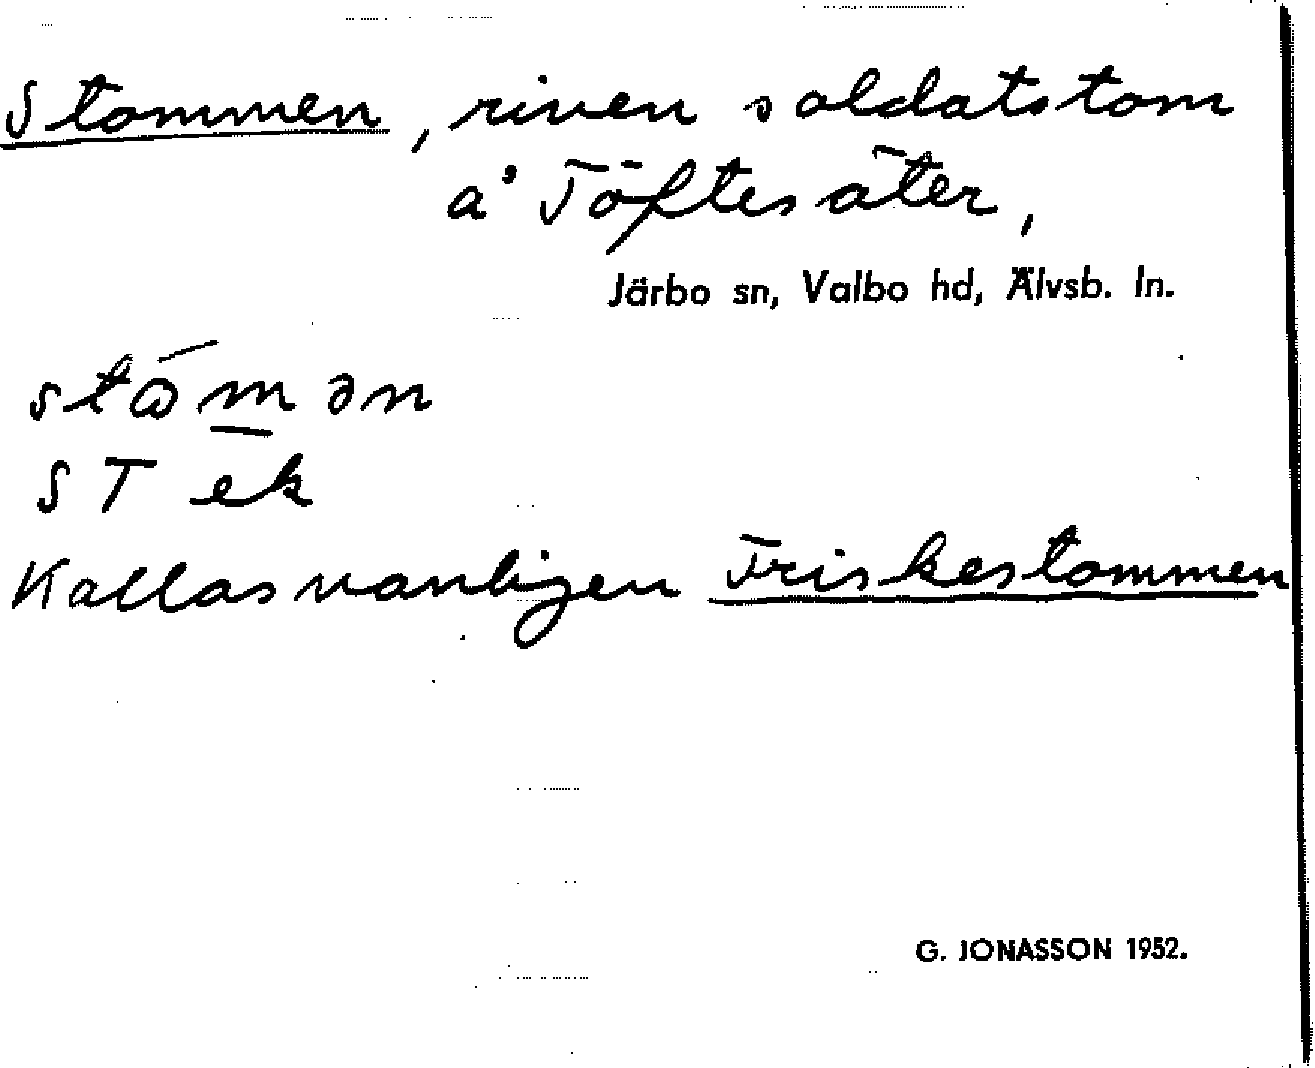 Stommen, riven soldatstom
å Töftesäter,
Järbo sn, Valbo hd, Älvsb. ln.
ståmən
ST ek
Kallas vanligen Friskestommen
G. JONASSON 1952.